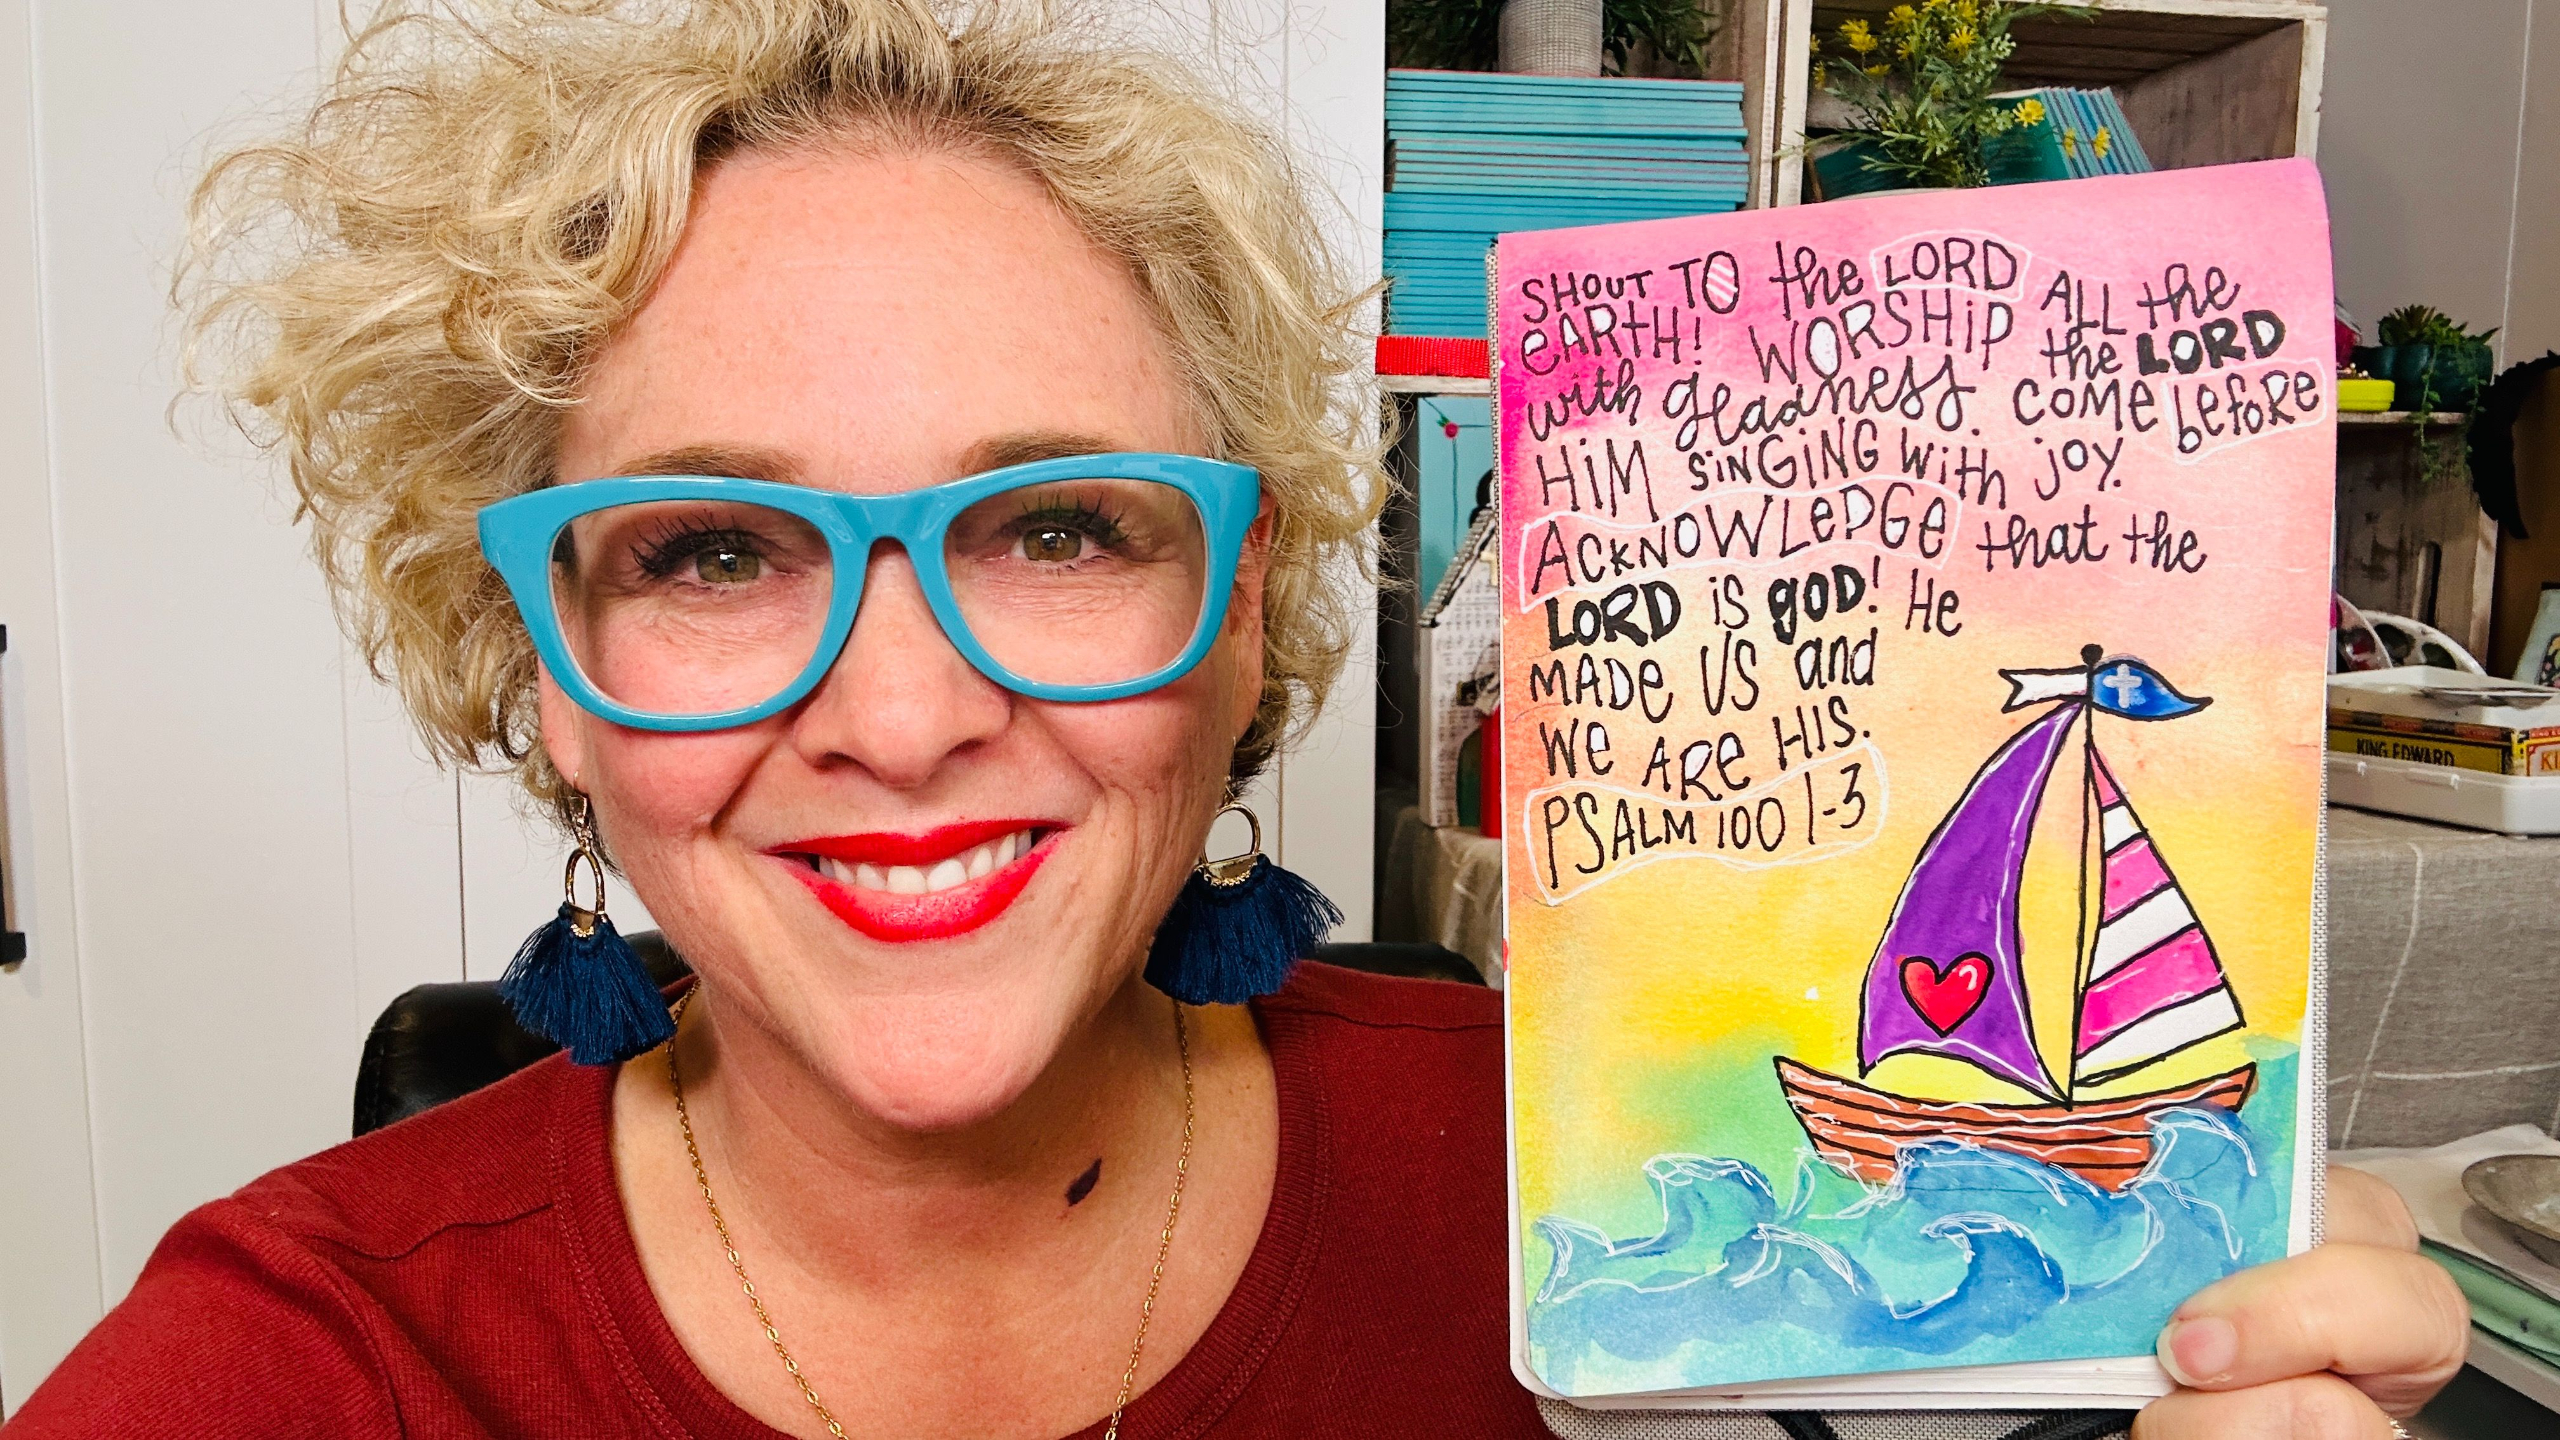 SHOUT TO the LORD ALL the
eARtH! WORSHiP the LORD
with gladness. COMe before
HiM SiNGiNG with joy.
ACkNOWLeDGe that the
LORD iS gOD! He
MADe US and
We ARe HIS.
PSALM 100 1-3
KING EDWARD
KI